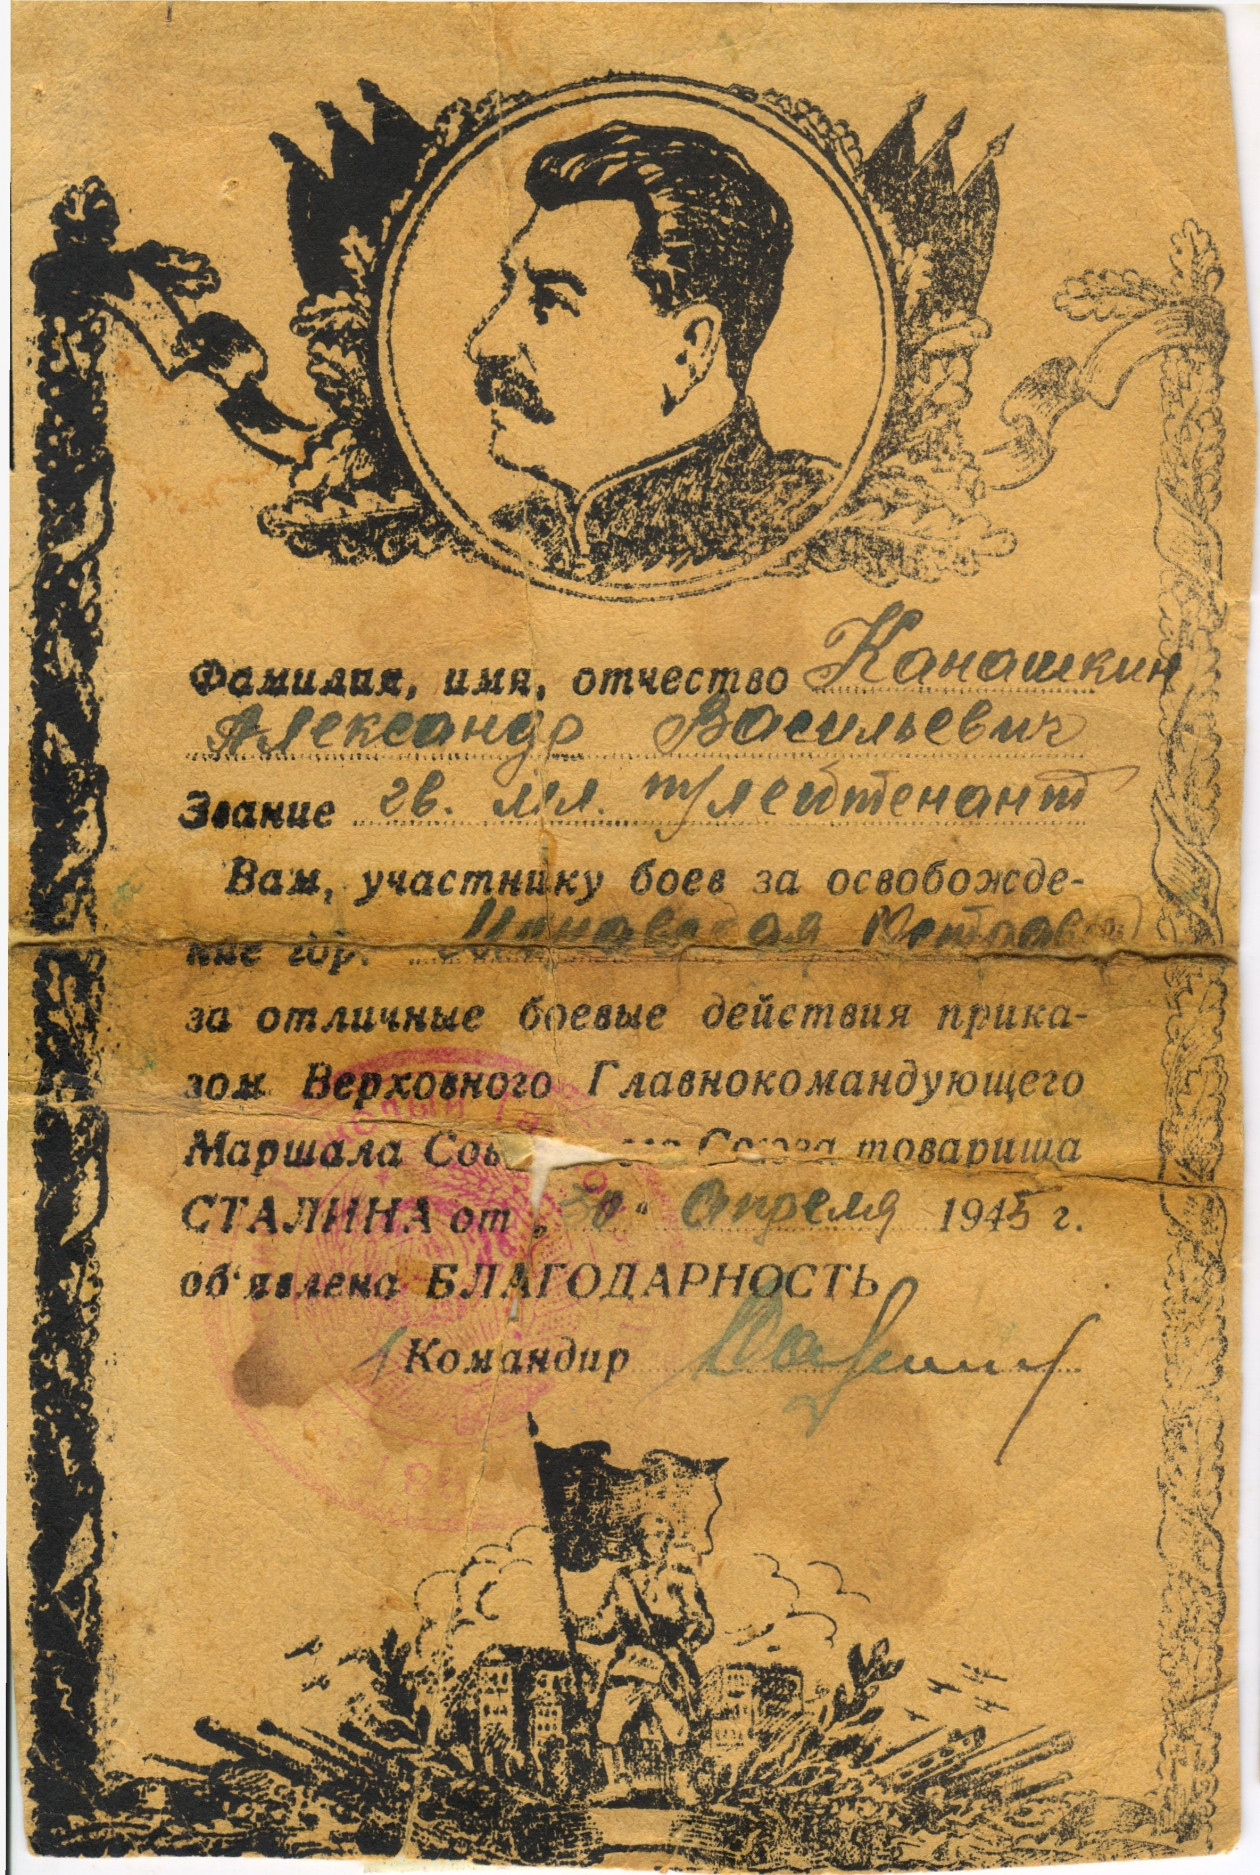 Фамилия, имя, отчество Канашкин
Александр Васильевич
Звание гв. мл. т/лейтенант
Вам, участнику боев за освобожде-
ние гор. Моравская Острава
за отличные боевые действия прика-
зом Верховного Главнокомандующего
Маршала Союза товарища
СТАЛИНА от „30" апреля 1945 г.
об'явлена БЛАГОДАРНОСТЬ
Командир